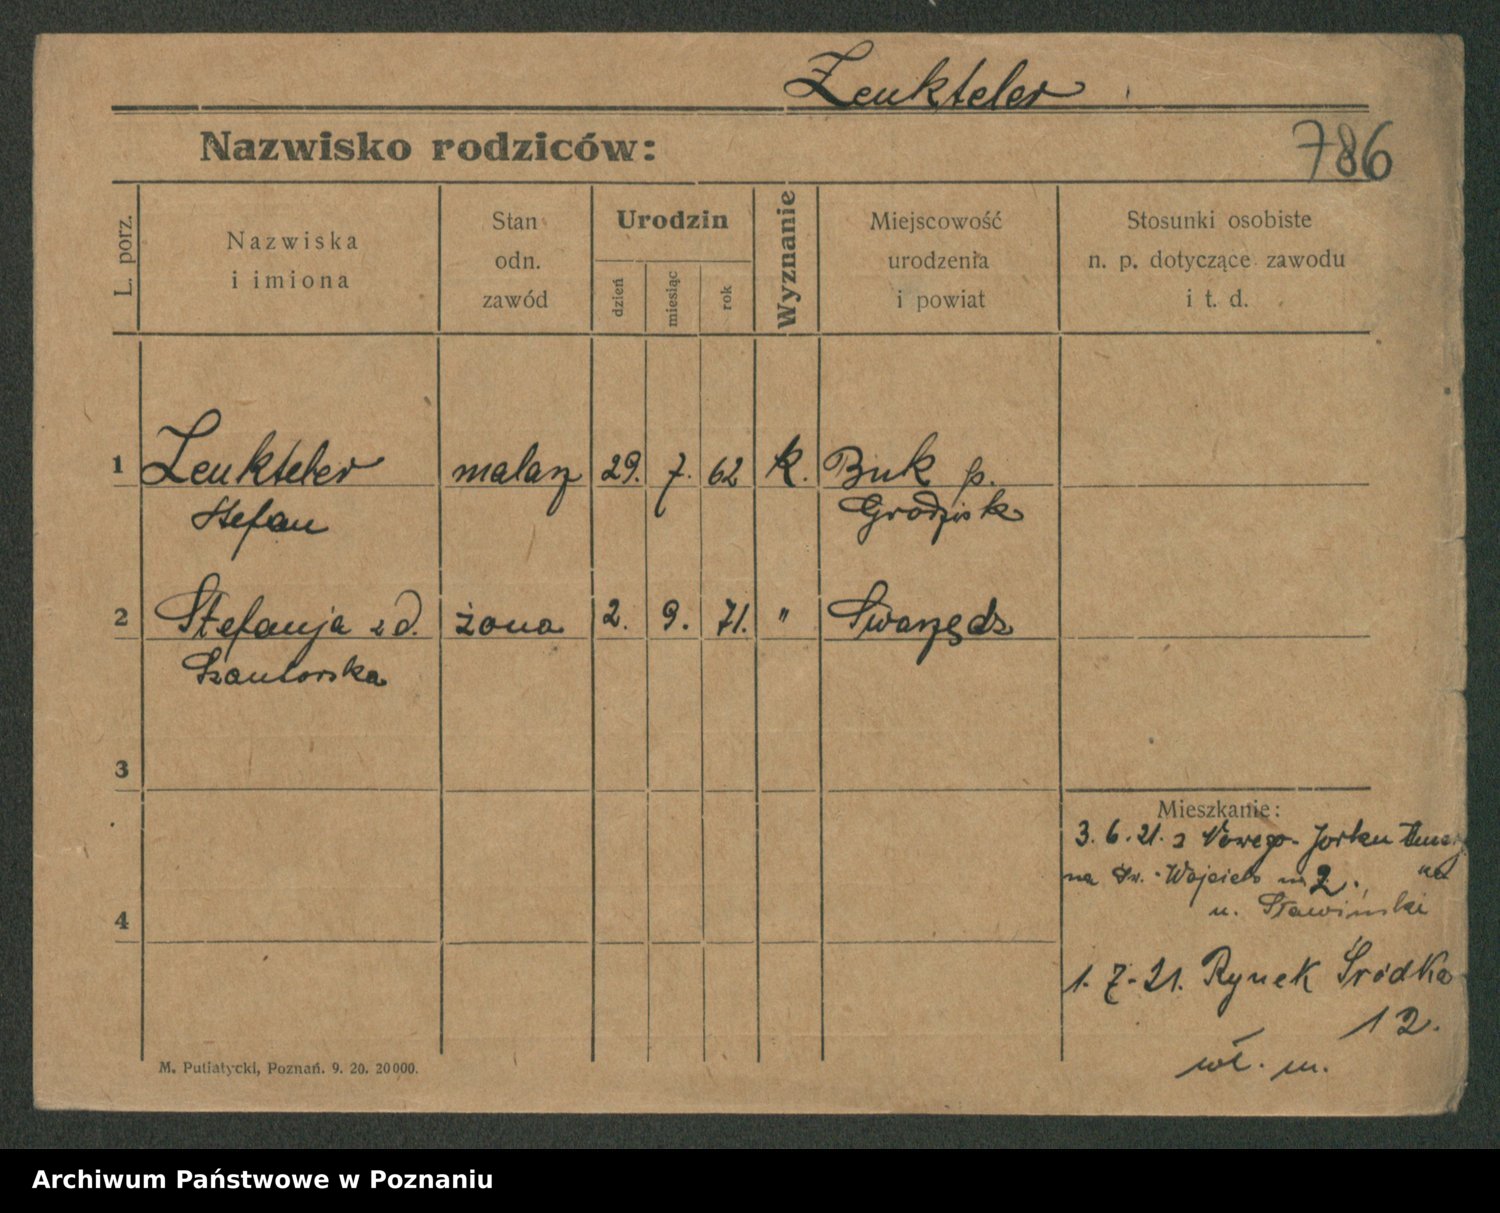 Zenkteler
Nazwisko rodziców:
786
L. porz.
Nazwiska
i imiona
Stan
odn.
zawód
Urodzin
dzień
miesiąc
rok
Wyznanie
Miejscowość
urodzenia
i powiat
Stosunki osobiste
n. p. dotyczące zawodu
i t. d.
1 Zenkteler malarz 29. 7. 62 k. Buk p.
Stefan Grodzisk
2 Stefanja zd. żona 2. 9. 71. " Swarzędz
Szantorska
3
4
Mieszkanie:
3. 6. 21. z Nowego-Jorku
na Św. Wojciech 2.
u. Sławiński
1. 7. 21. Rynek Śródka
12.
wł. m.
M. Putiatycki, Poznań. 9. 20. 20000.
Archiwum Państwowe w Poznaniu